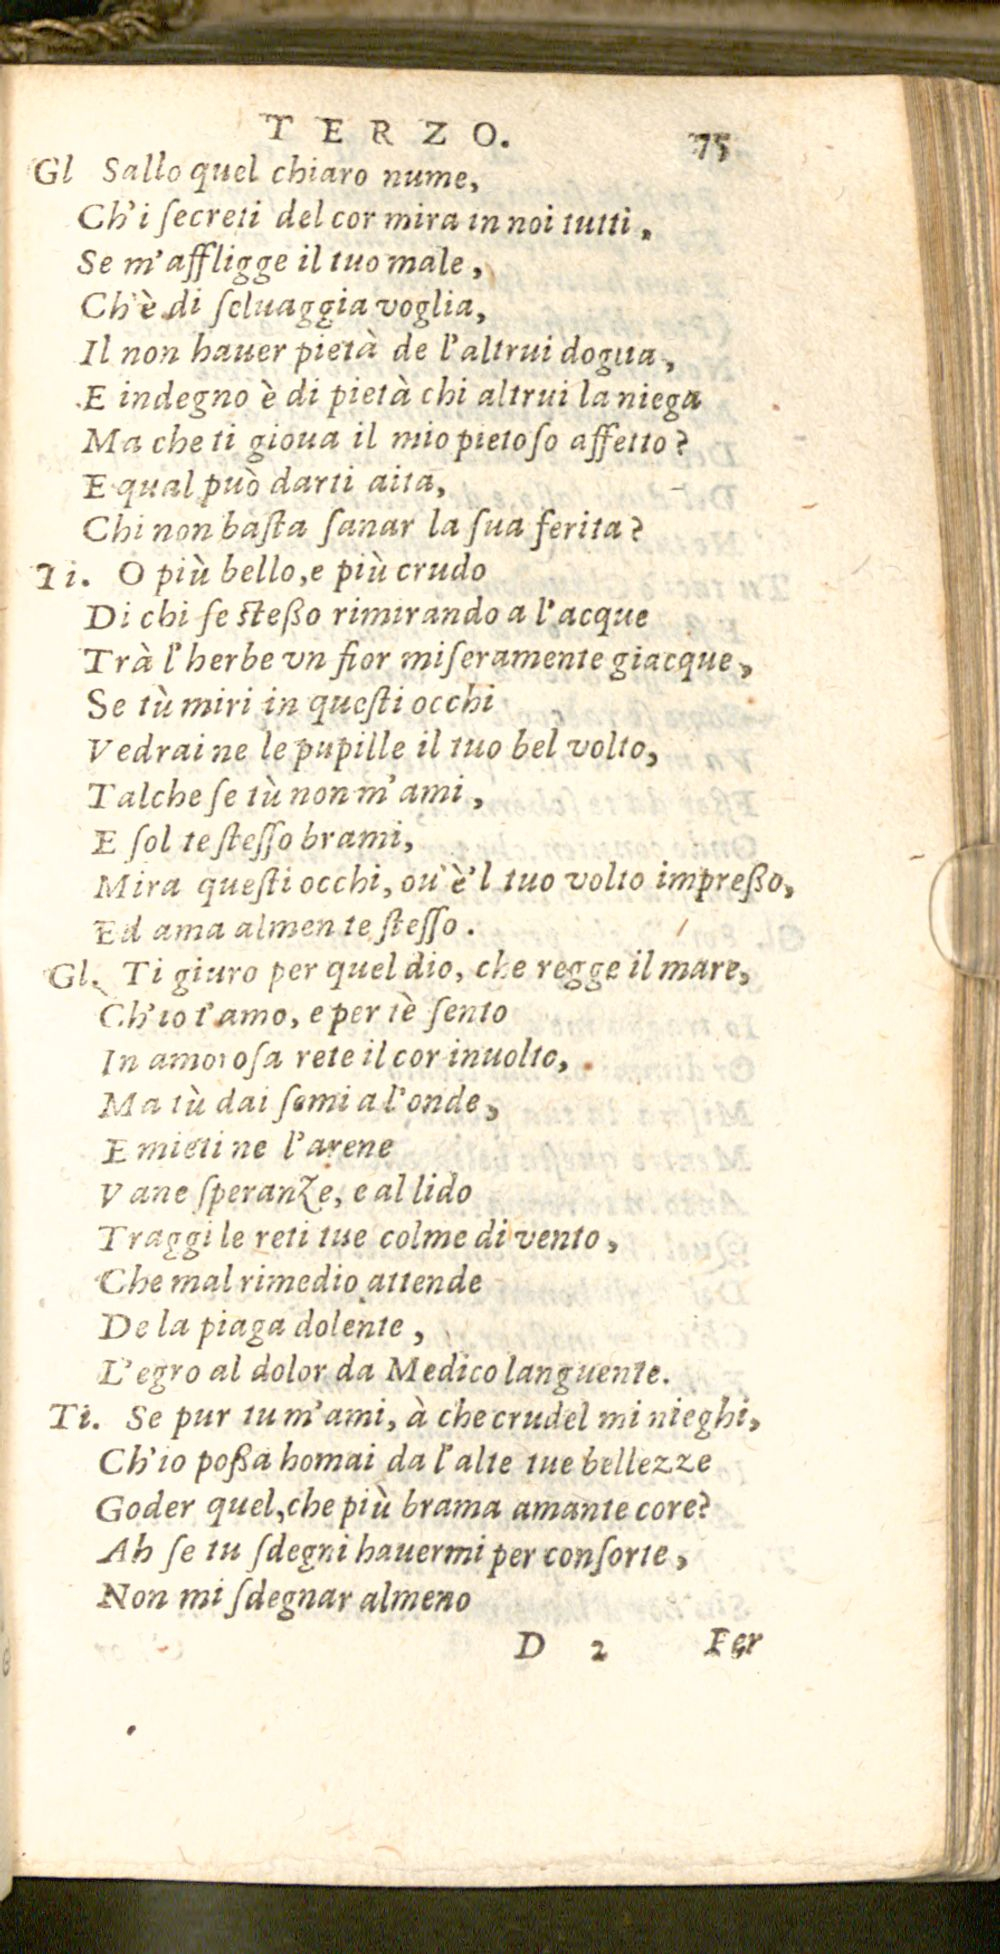 TERZO. 75
Gl Sallo quel chiaro nume,
Ch'i ſecreti del cor mira in noi tutti,
Se m'affligge il tuo male,
Ch'è di ſeluaggia voglia,
Il non hauer pietà de l'altrui doglia,
E indegno è di pietà chi altrui la niega
Ma che ti gioua il mio pietoſo affetto?
E qual può darti aita,
Chi non baſta ſanar la ſua ferita?
Ti. O più bello, e più crudo
Di chi ſe ſteßo rimirando a l'acque
Trà l'herbe vn fior miſeramente giacque,
Se tù miri in queſti occhi
Vedrai ne le pupille il tuo bel volto,
Talche ſe tù non m'ami,
E ſol te ſteſſo brami,
Mira queſti occhi, ou'è'l tuo volto impreßo,
Ed ama almen te ſteſſo.
Gl. Ti giuro per quel dio, che regge il mare,
Ch'io t'amo, e per tè ſento
In amoroſa rete il cor inuolto,
Ma tù dai ſemi a l'onde,
E mieti ne l'arene
Vane ſperanze, e al lido
Traggi le reti tue colme di vento,
Che mal rimedio attende
De la piaga dolente,
L'egro al dolor da Medico languente.
Ti. Se pur tu m'ami, à che crudel mi nieghi,
Ch'io poßa homai da l'alte tue bellezze
Goder quel, che più brama amante core?
Ah ſe tu ſdegni hauermi per conſorte,
Non mi ſdegnar almeno
D 2 Per